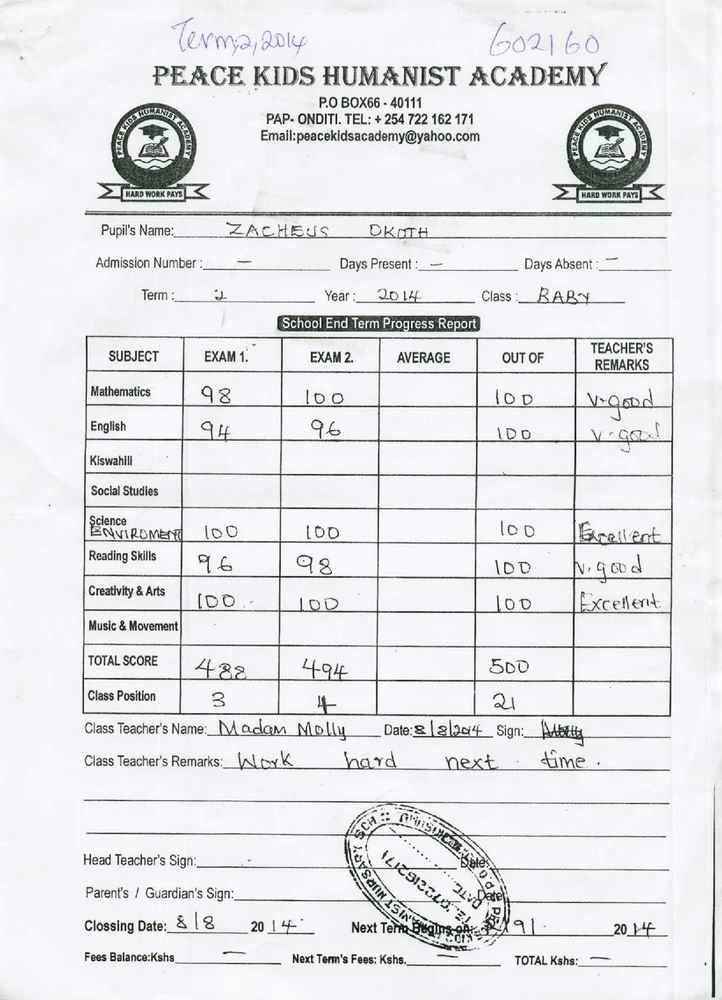 Term,2,2014 602160
PEACE KIDS HUMANIST ACADEMY
P.O BOX66 - 40111
PAP- ONDITI. TEL: + 254 722 162 171
Email:peacekidsacademy@yahoo.com
PEACE KIDS HUMANIST ACADEMY
HARD WORK PAYS
PEACE KIDS HUMANIST ACADEMY
HARD WORK PAYS
Pupil's Name: ZACHEUS OKOTH
Admission Number : — Days Present : — Days Absent : —
Term : 2 Year : 2014 Class : BABY
School End Term Progress Report
SUBJECT EXAM 1. EXAM 2. AVERAGE OUT OF TEACHER'S REMARKS
Mathematics 98 100 100 V-good
English 94 96 100 V-good
Kiswahili
Social Studies
Science ENVIROMENT 100 100 100 Excellent
Reading Skills 96 98 100 V. good
Creativity & Arts 100 100 100 Excellent
Music & Movement
TOTAL SCORE 488 494 500
Class Position 3 4 21
Class Teacher's Name: Madam Molly Date: 8/8/2014 Sign:
Class Teacher's Remarks: Work hard next time.
Head Teacher's Sign: Date
Parent's / Guardian's Sign: Date
Clossing Date: 8/8 2014 Next Term Begins on: /9/ 2014
Fees Balance:Kshs — Next Term's Fees: Kshs. — TOTAL Kshs: —